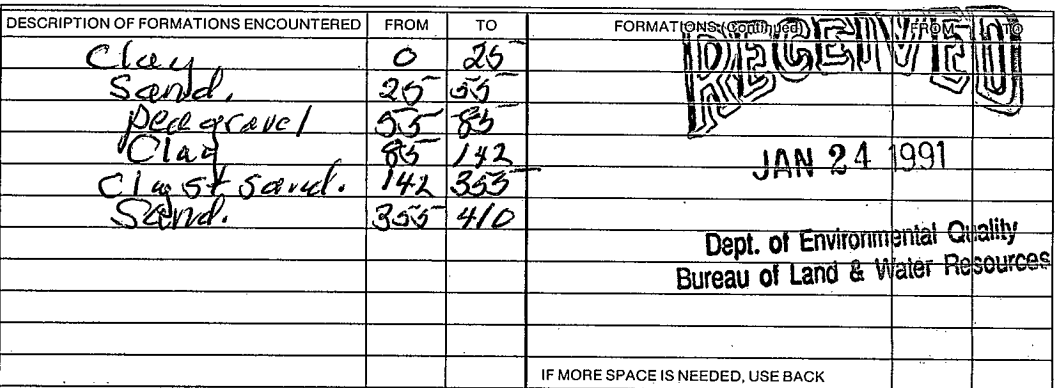 DESCRIPTION OF FORMATIONS ENCOUNTERED FROM TO FORMATIONS (Continued) FROM TO
Clay 0 25
Sand. 25 55
pea gravel 55 85
Clay 85 142
Clay st sand. 142 355
Sand. 355 410
RECEIVED
JAN 24 1991
Dept. of Environmental Quality
Bureau of Land & Water Resources
IF MORE SPACE IS NEEDED, USE BACK